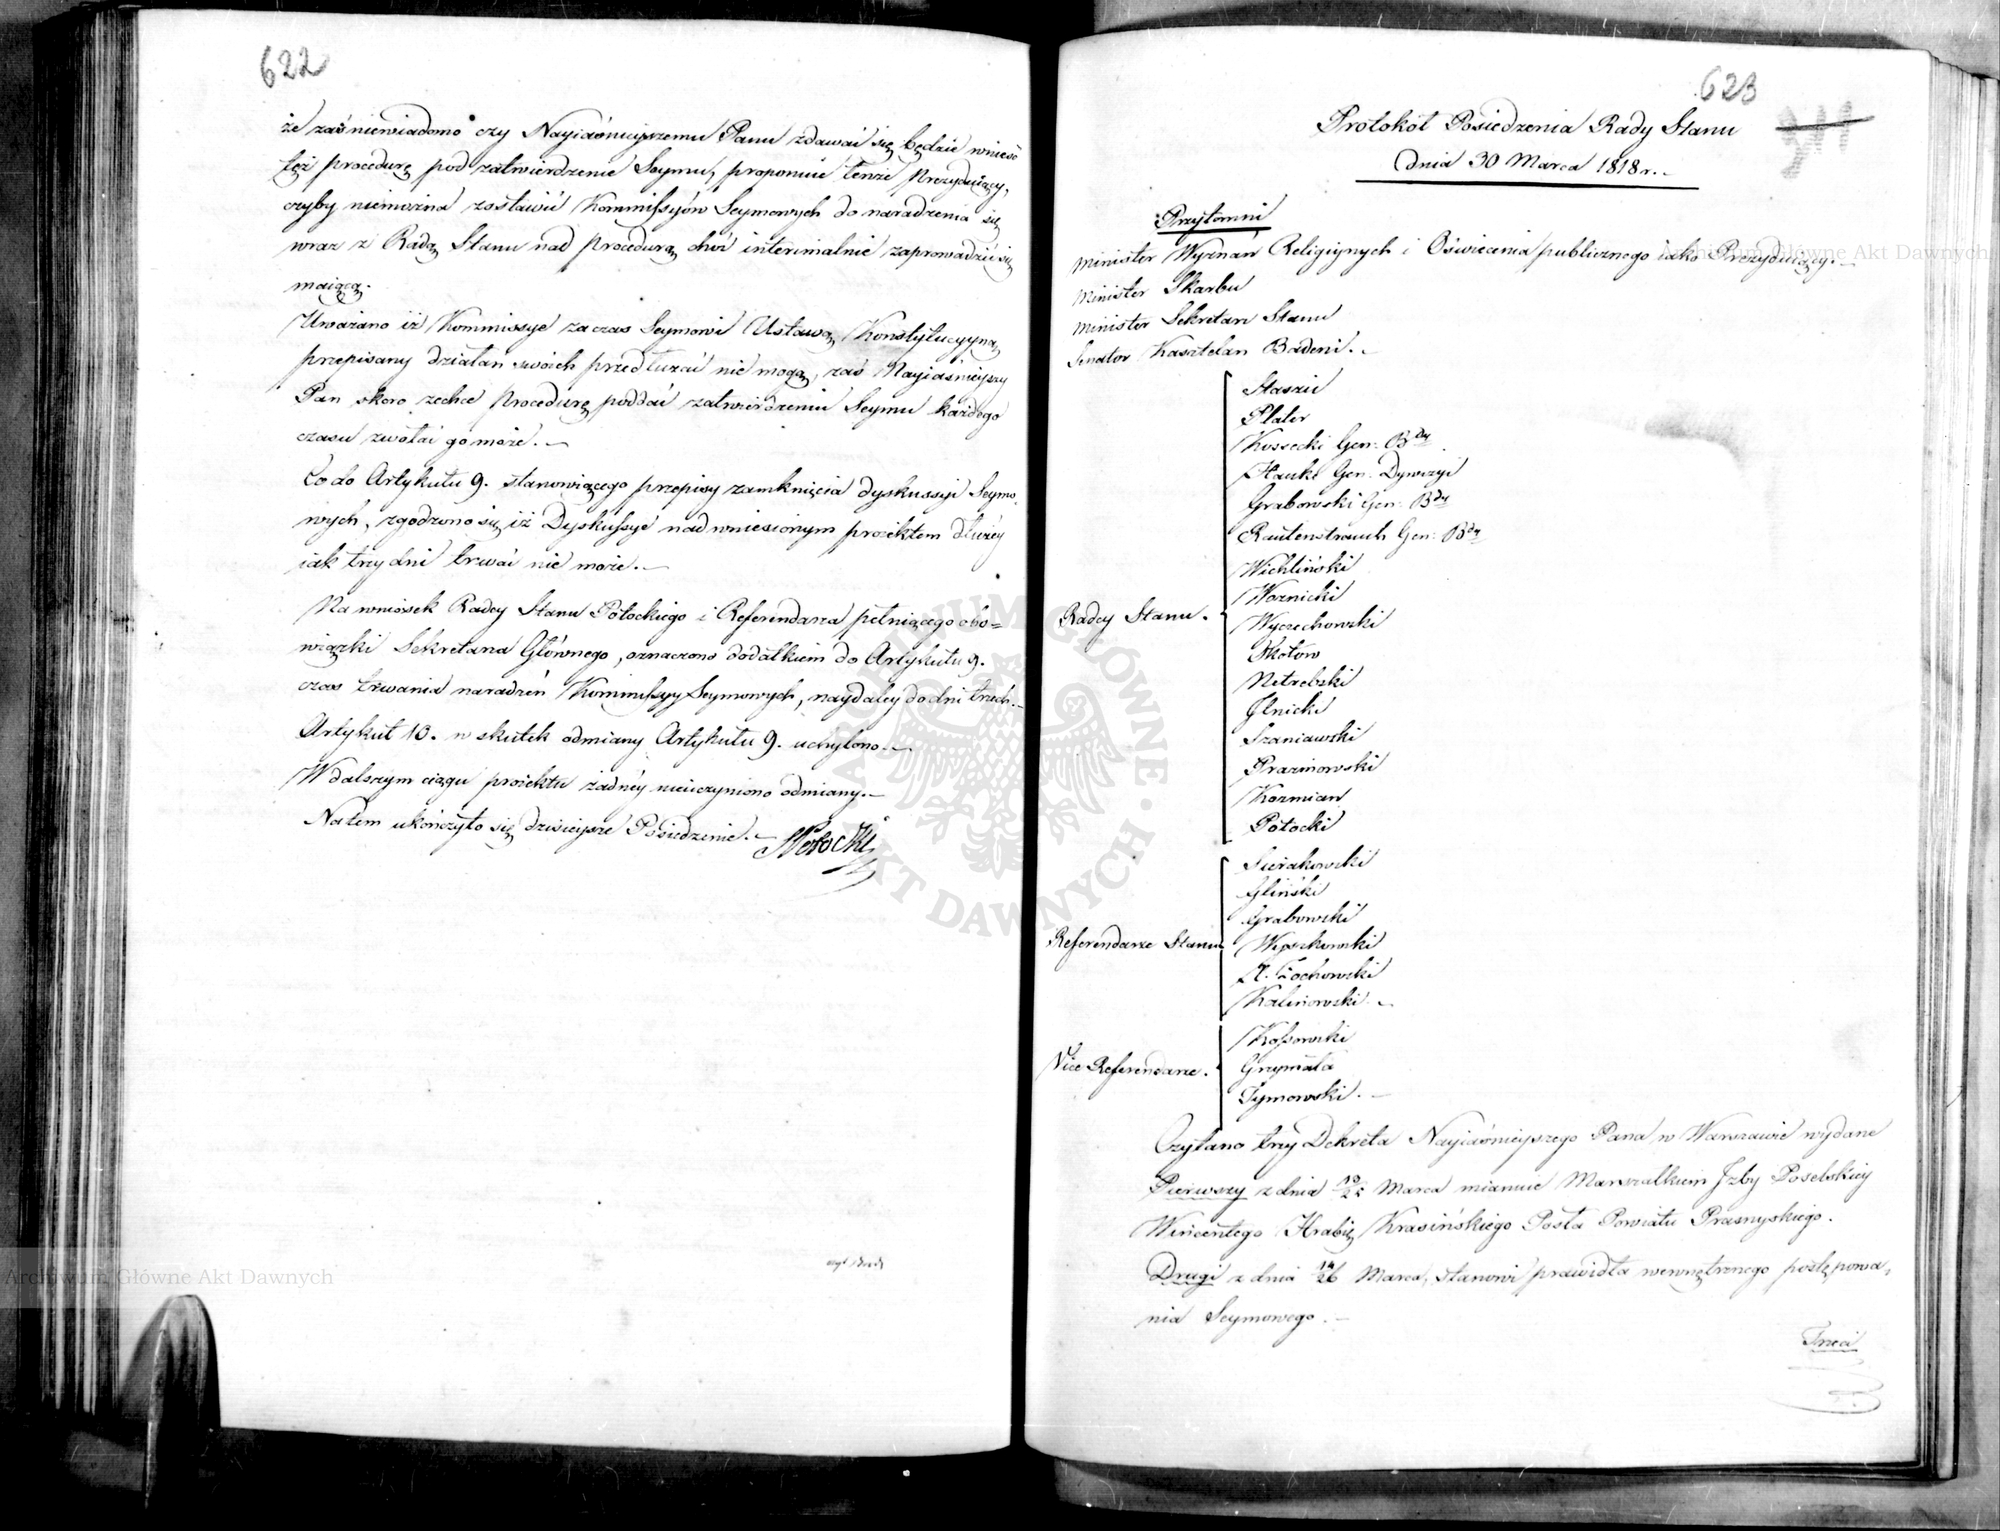 622
że zaś niewiadomo czy Nayiaśnieyszemu Panu zdawać się będzie wnieść
tęż procedurę pod zatwierdzenie Seymu, proponuie tenże Prezyduiący,
czyby niemożna zostawić Kommissyów Seymowych do naradzenia się
wraz z Radą Stanu nad procedurą choć interimalnie zaprowadzić się
maiącą.
Uważano iż Kommissye za czas Seymowi Ustawą Konstytucyyną
przepisany działań swoich przedłużać nie mogą, zaś Nayiaśnieyszy
Pan skoro zechce procedurę poddać zatwierdzeniu Seymu każdego
czasu zwołać go może.
Co do Artykułu 9. stanowiącego przepisy zamknięcia dyskussyi Seymo
wych, zgodzono się iż Dyskussye nad wniesionym proiektem dłużey
iak trzy dni trwać nie może.
Na wniosek Radcy Stanu Potockiego i Referendarza pełniącego obo=
wiązki Sekretarza Głównego, oznaczono dodatkiem do Artykułu 9.
czas trwania naradzeń Kommissyy Seymowych, naydaley do dni trzech.
Artykuł 10. w skutek odmiany Artykułu 9. uchylono.
W dalszym ciągu proiektu żadney nieuczyniono odmiany.
Na tem ukończyło się dzisieysze Posiedzenie.
Potocki
623
Protokół Posiedzenia Rady Stanu
dnia 30 Marca 1818 r.
Przytomni
Minister Wyznań Religiynych i Oświecenia publicznego iako Prezyduiący.
Minister Skarbu
Minister Sekretarz Stanu
Senator Kasztelan Badeni.
Radcy Stanu.
Staszic
Plater
Kossecki Gen: Bdy
Hauke Gen. Dywizyi
Grabowski Gen: Bdy
Rautenstrauch Gen: Bdy
Wichliński
Woznicki
Wyczechowski
Okołów
Netrebski
Ilnicki
Szaniawski
Prazmowski
Kozmian
Potocki
Referendarze Stanu
Sierakowski
Gliński
Grabowski
Węgrzkowski
A. Żochowski
Kalinowski.
Vice Referendarze.
Kossowski
Grzymała
Tymowski.
Czytano trzy Dekreta Nayiaśnieyszego Pana w Warszawie wydane
Pierwszy z dnia 13/25 Marca mianuie Marszałkiem Izby Poselskiey
Wincentego Hrabię Krasińskiego Posła Powiatu Prasnyskiego.
Drugi z dnia 14/26 Marca, stanowi prawidła wewnętrznego postępowa,
nia Seymowego.
Trzeci
Archiwum Główne Akt Dawnych
Archiwum Główne Akt Dawnych
ARCHIWUM GŁÓWNE AKT DAWNYCH